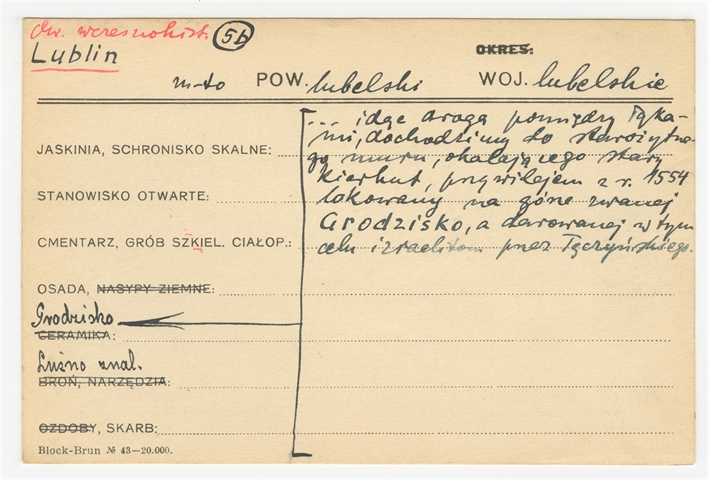 dw. wczesnohist. 5b
Lublin
OKRES:
m-to POW. lubelski WOJ. lubelskie
... idąc drogą pomiędzy łąka-
mi, dochodzimy do starożytne-
JASKINIA, SCHRONISKO SKALNE:
go muru, okalającego stary
kierkut, przywilejem z r. 1554
STANOWISKO OTWARTE:
lokowany na górze zwanej
Grodzisko, a darowanej w tym
CMENTARZ, GRÓB SZKIEL. CIAŁOP.:
celu izraelitom przez Tęczyńskiego.
OSADA, NASYPY ZIEMNE:
Grodzisko
CERAMIKA:
Luźno znal.
BROŃ, NARZĘDZIA:
OZDOBY, SKARB:
Block-Brun № 43-20.000.